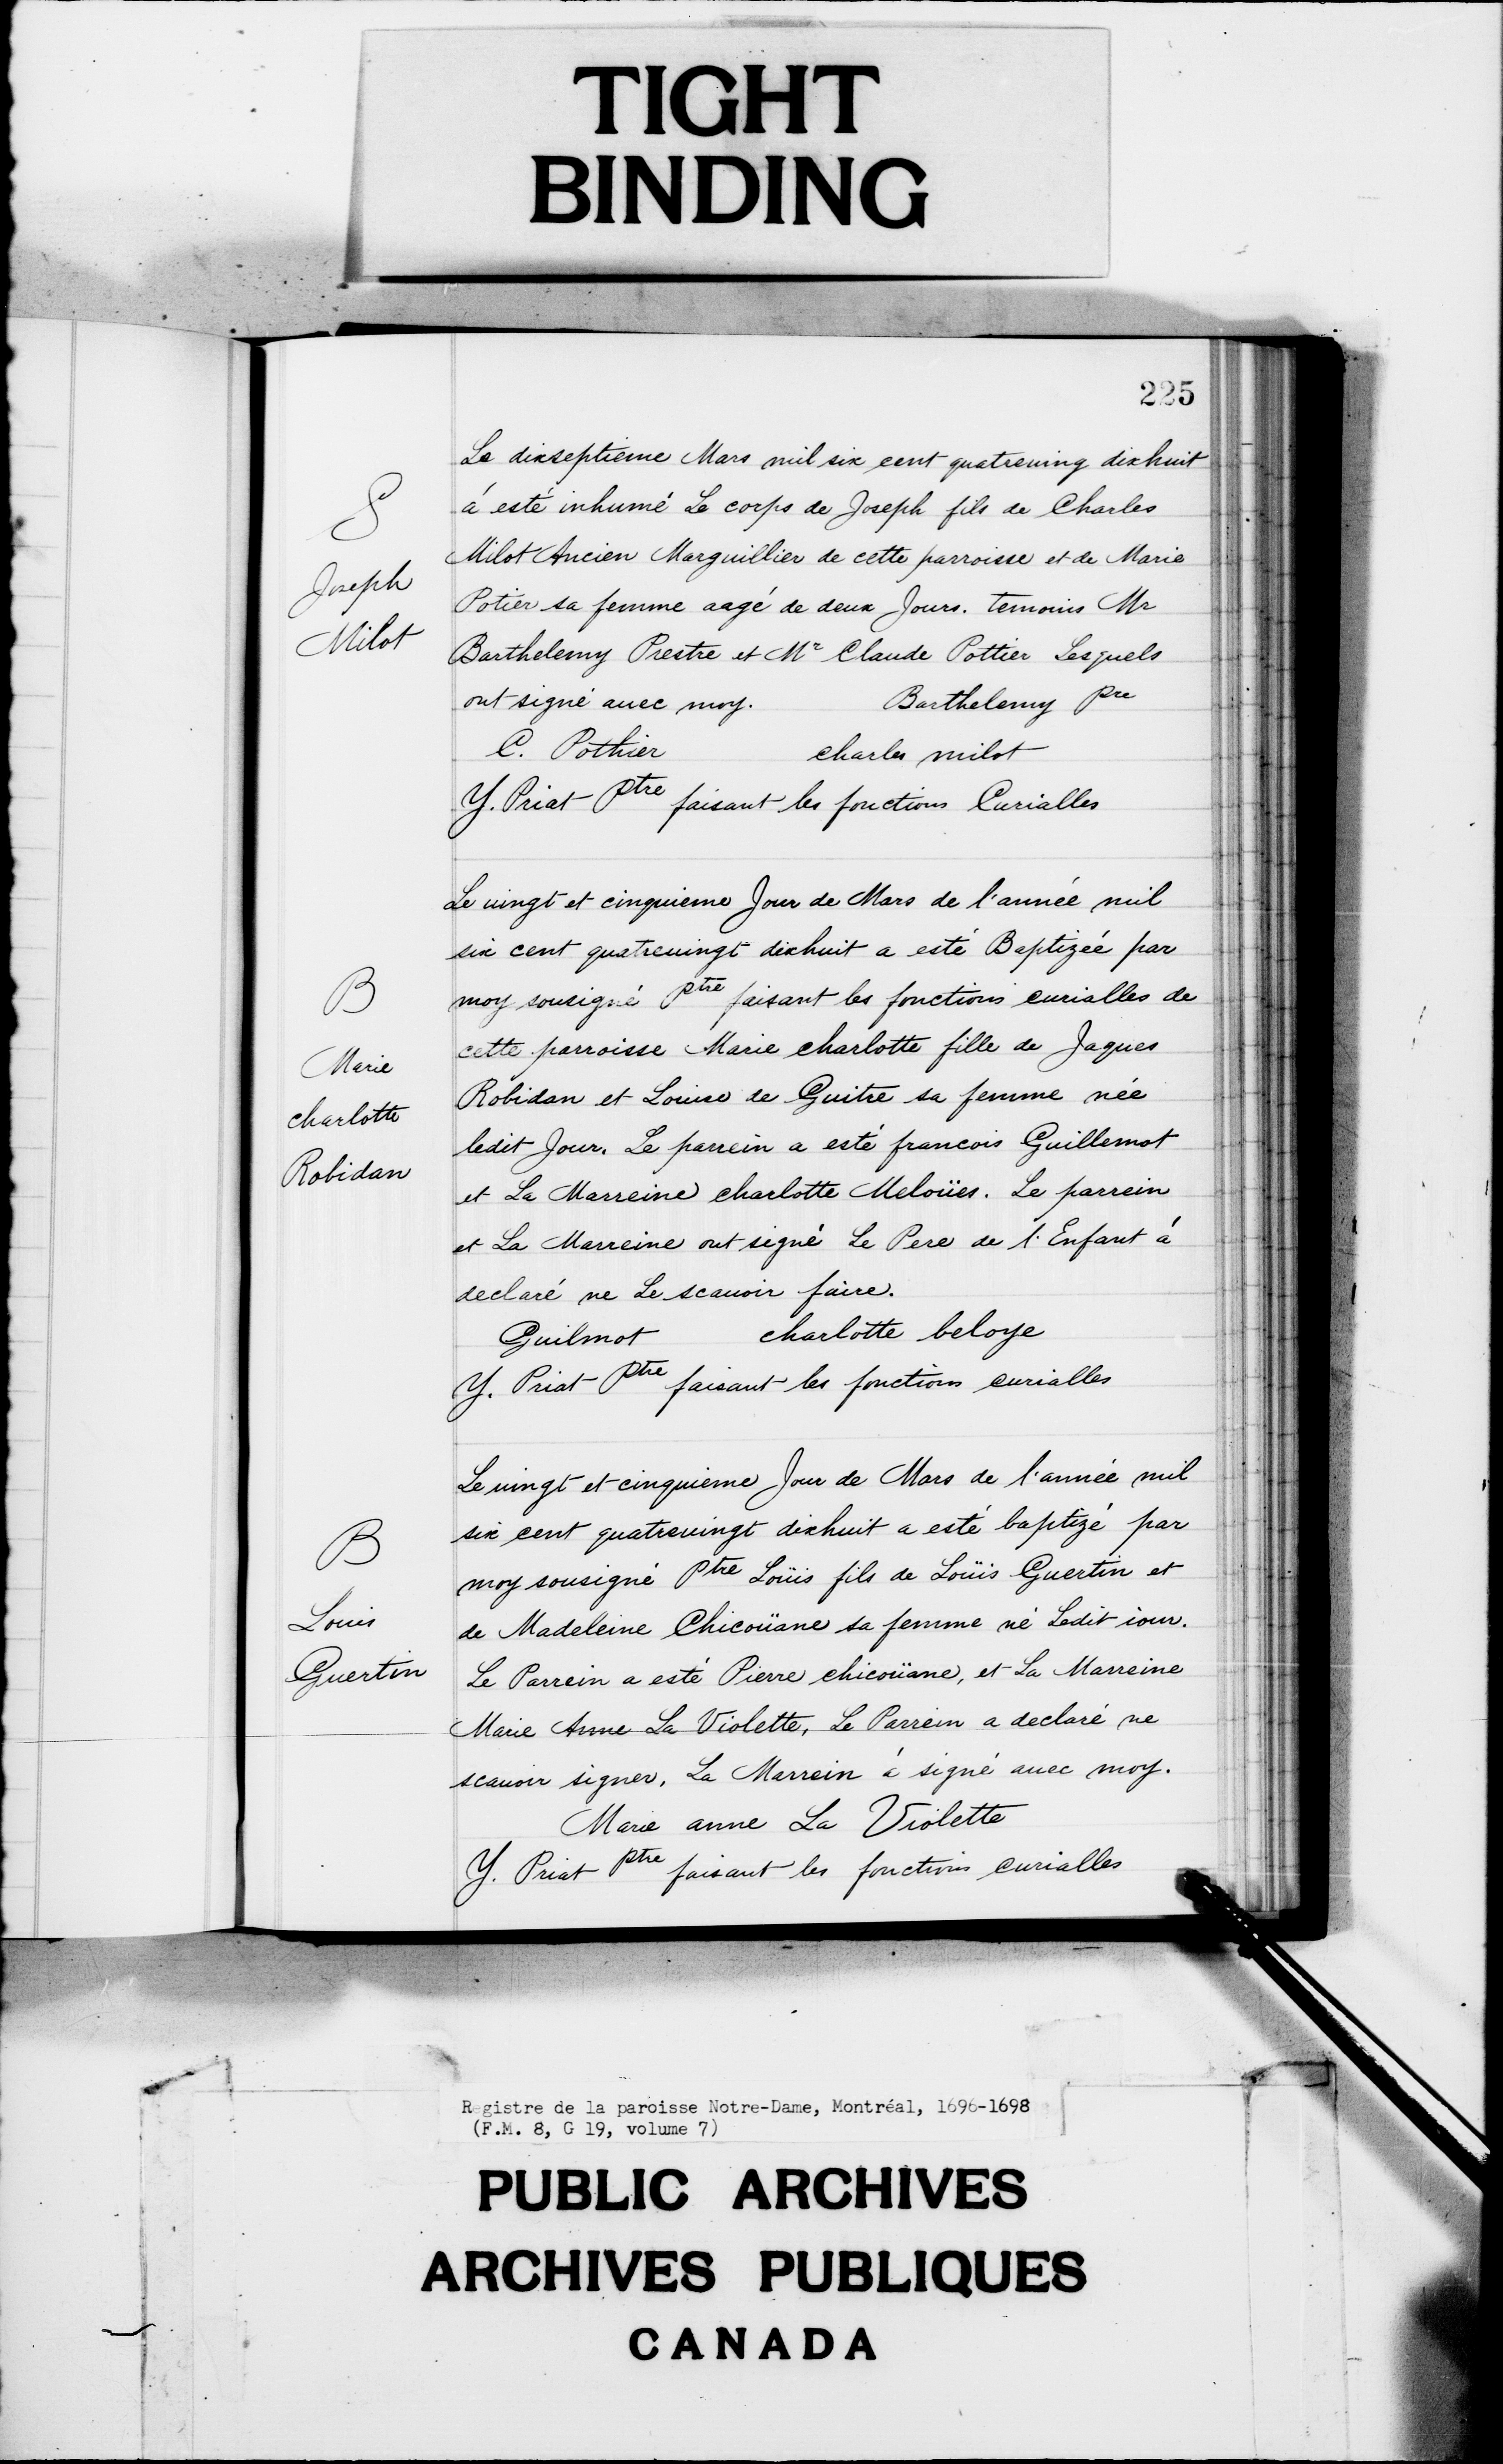 TIGHT
BINDING
225
S
Joseph
Milot
Le dixseptieme Mars mil six cent quatreuing dixhuit
á esté inhumé Le corps de Joseph fils de Charles
Milot Ancien Marguillier de cette parroisse et de Marie
Potier sa femme aagé de deux Jours. temoins Mr
Barthelemy Prestre et Mr Claude Pottier Lesquels
ont signé auec moy. Barthelemy Pre
C. Pothier charles milot
Y. Priat Ptre faisant les fonctions Curialles
B
Marie
charlotte
Robidan
Le uingt et cinquieme Jour de Mars de l'année mil
six cent quatreuingt dixhuit a esté Baptizée par
moy sousigné Ptre faisant les fonctions curialles de
cette parroisse Marie charlotte fille de Jaques
Robidan et Louise de Guitre sa femme née
ledit Jour. Le parrein a esté francois Guillemot
et La Marreine charlotte Meloües. Le parrein
et La Marreine ont signé Le Pere de l'Enfant á
declaré ne Le scauoir faire.
Guilmot charlotte beloye
Y. Priat Ptre faisant les fonctions curialles
B
Louis
Guertin
Le uingt et cinquieme Jour de Mars de l'année mil
six cent quatreuingt dixhuit a esté baptizé par
moy sousigné Ptre Loüis fils de Loüis Guertin et
de Madeleine Chicoüane sa femme né Ledit iour.
Le Parrein a esté Pierre chicoüane, et La Marreine
Marie Anne La Violette, Le Parrein a declaré ne
scauoir signer, La Marrein á signé auec moy.
Marie anne La Violette
Y. Priat Ptre faisant les fonctions curialles
Registre de la paroisse Notre-Dame, Montréal, 1696-1698
(F.M. 8, G 19, volume 7)
PUBLIC ARCHIVES
ARCHIVES PUBLIQUES
CANADA